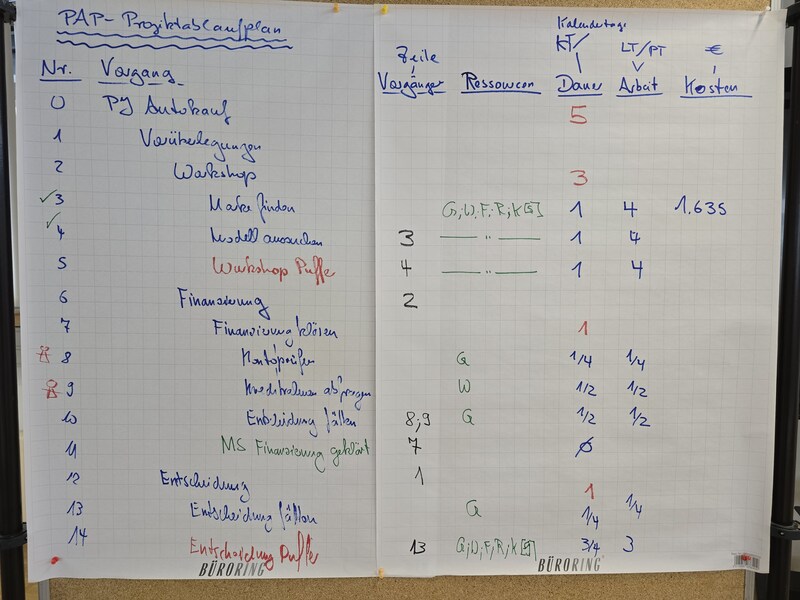 PAP - Projektablaufplan
Kalendertage
Zeile KT/ LT/PT €
Nr. Vorgang Vorgänger Ressourcen Dauer Arbeit Kosten
0 PJ Autokauf 5
1 Vorüberlegungen
2 Workshop 3
3 Marke finden G, W, F, R, K[5] 1 4 1.635
4 Modell aussuchen 3 — " — 1 4
5 Workshop Puffer 4 — " — 1 4
6 Finanzierung 2
7 Finanzierung klären 1
8 Konto prüfen G 1/4 1/4
9 Kreditrahmen abfragen W 1/2 1/2
10 Entscheidung fällen 8;9 G 1/2 1/2
11 MS Finanzierung geklärt 7 0
12 Entscheidung 1 1
13 Entscheidung fällen G 1/4 1/4
14 Entscheidung Puffer 13 G, W, F, R, K[5] 3/4 3
BÜRORING BÜRORING